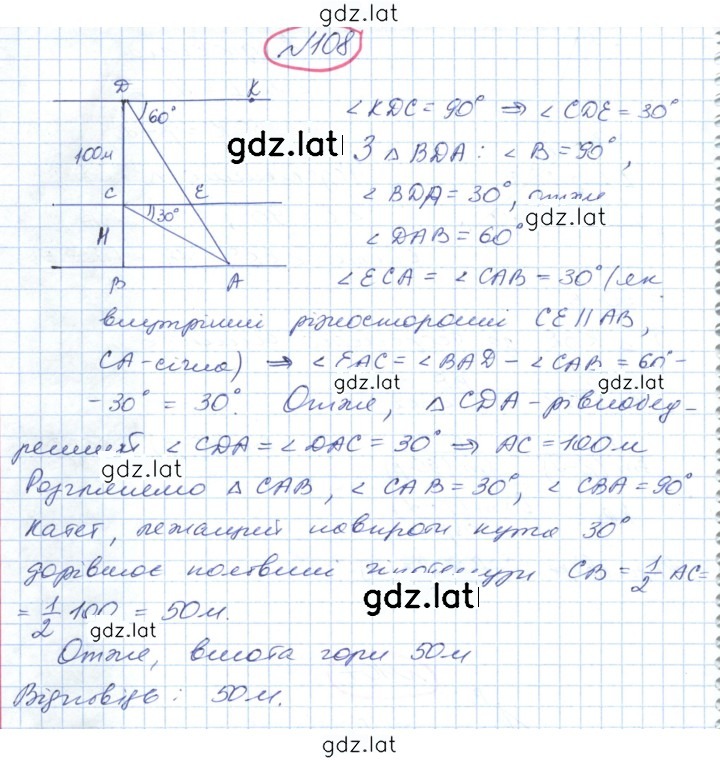 gdz.lat
№108
D K
60°
100м
C E
30°
H
B A
∠KDC = 90° ⇒ ∠CDE = 30°
gdz.lat
З △BDA: ∠B = 90°,
∠BDA = 30°, отже
gdz.lat
∠DAB = 60°
∠ECA = ∠CAB = 30° (як
внутрішні різносторонні CE || AB,
CA - січна) ⇒ ∠EAC = ∠BAD - ∠CAB = 60° -
gdz.lat gdz.lat
- 30° = 30°. Отже, △CDA - рівнобед-
∠CDA = ∠DAC = 30° ⇒ AC = 100м
gdz.lat
Розглянемо △CAB, ∠CAB = 30°, ∠CBA = 90°
Катет, лежащий навпроти кута 30°
дорівнює половині гіпотенузи CB = 1/2 AC =
= 1/2 100 = 50м.
gdz.lat gdz.lat
Отже, висота гори 50м
Відповідь: 50м.
gdz.lat